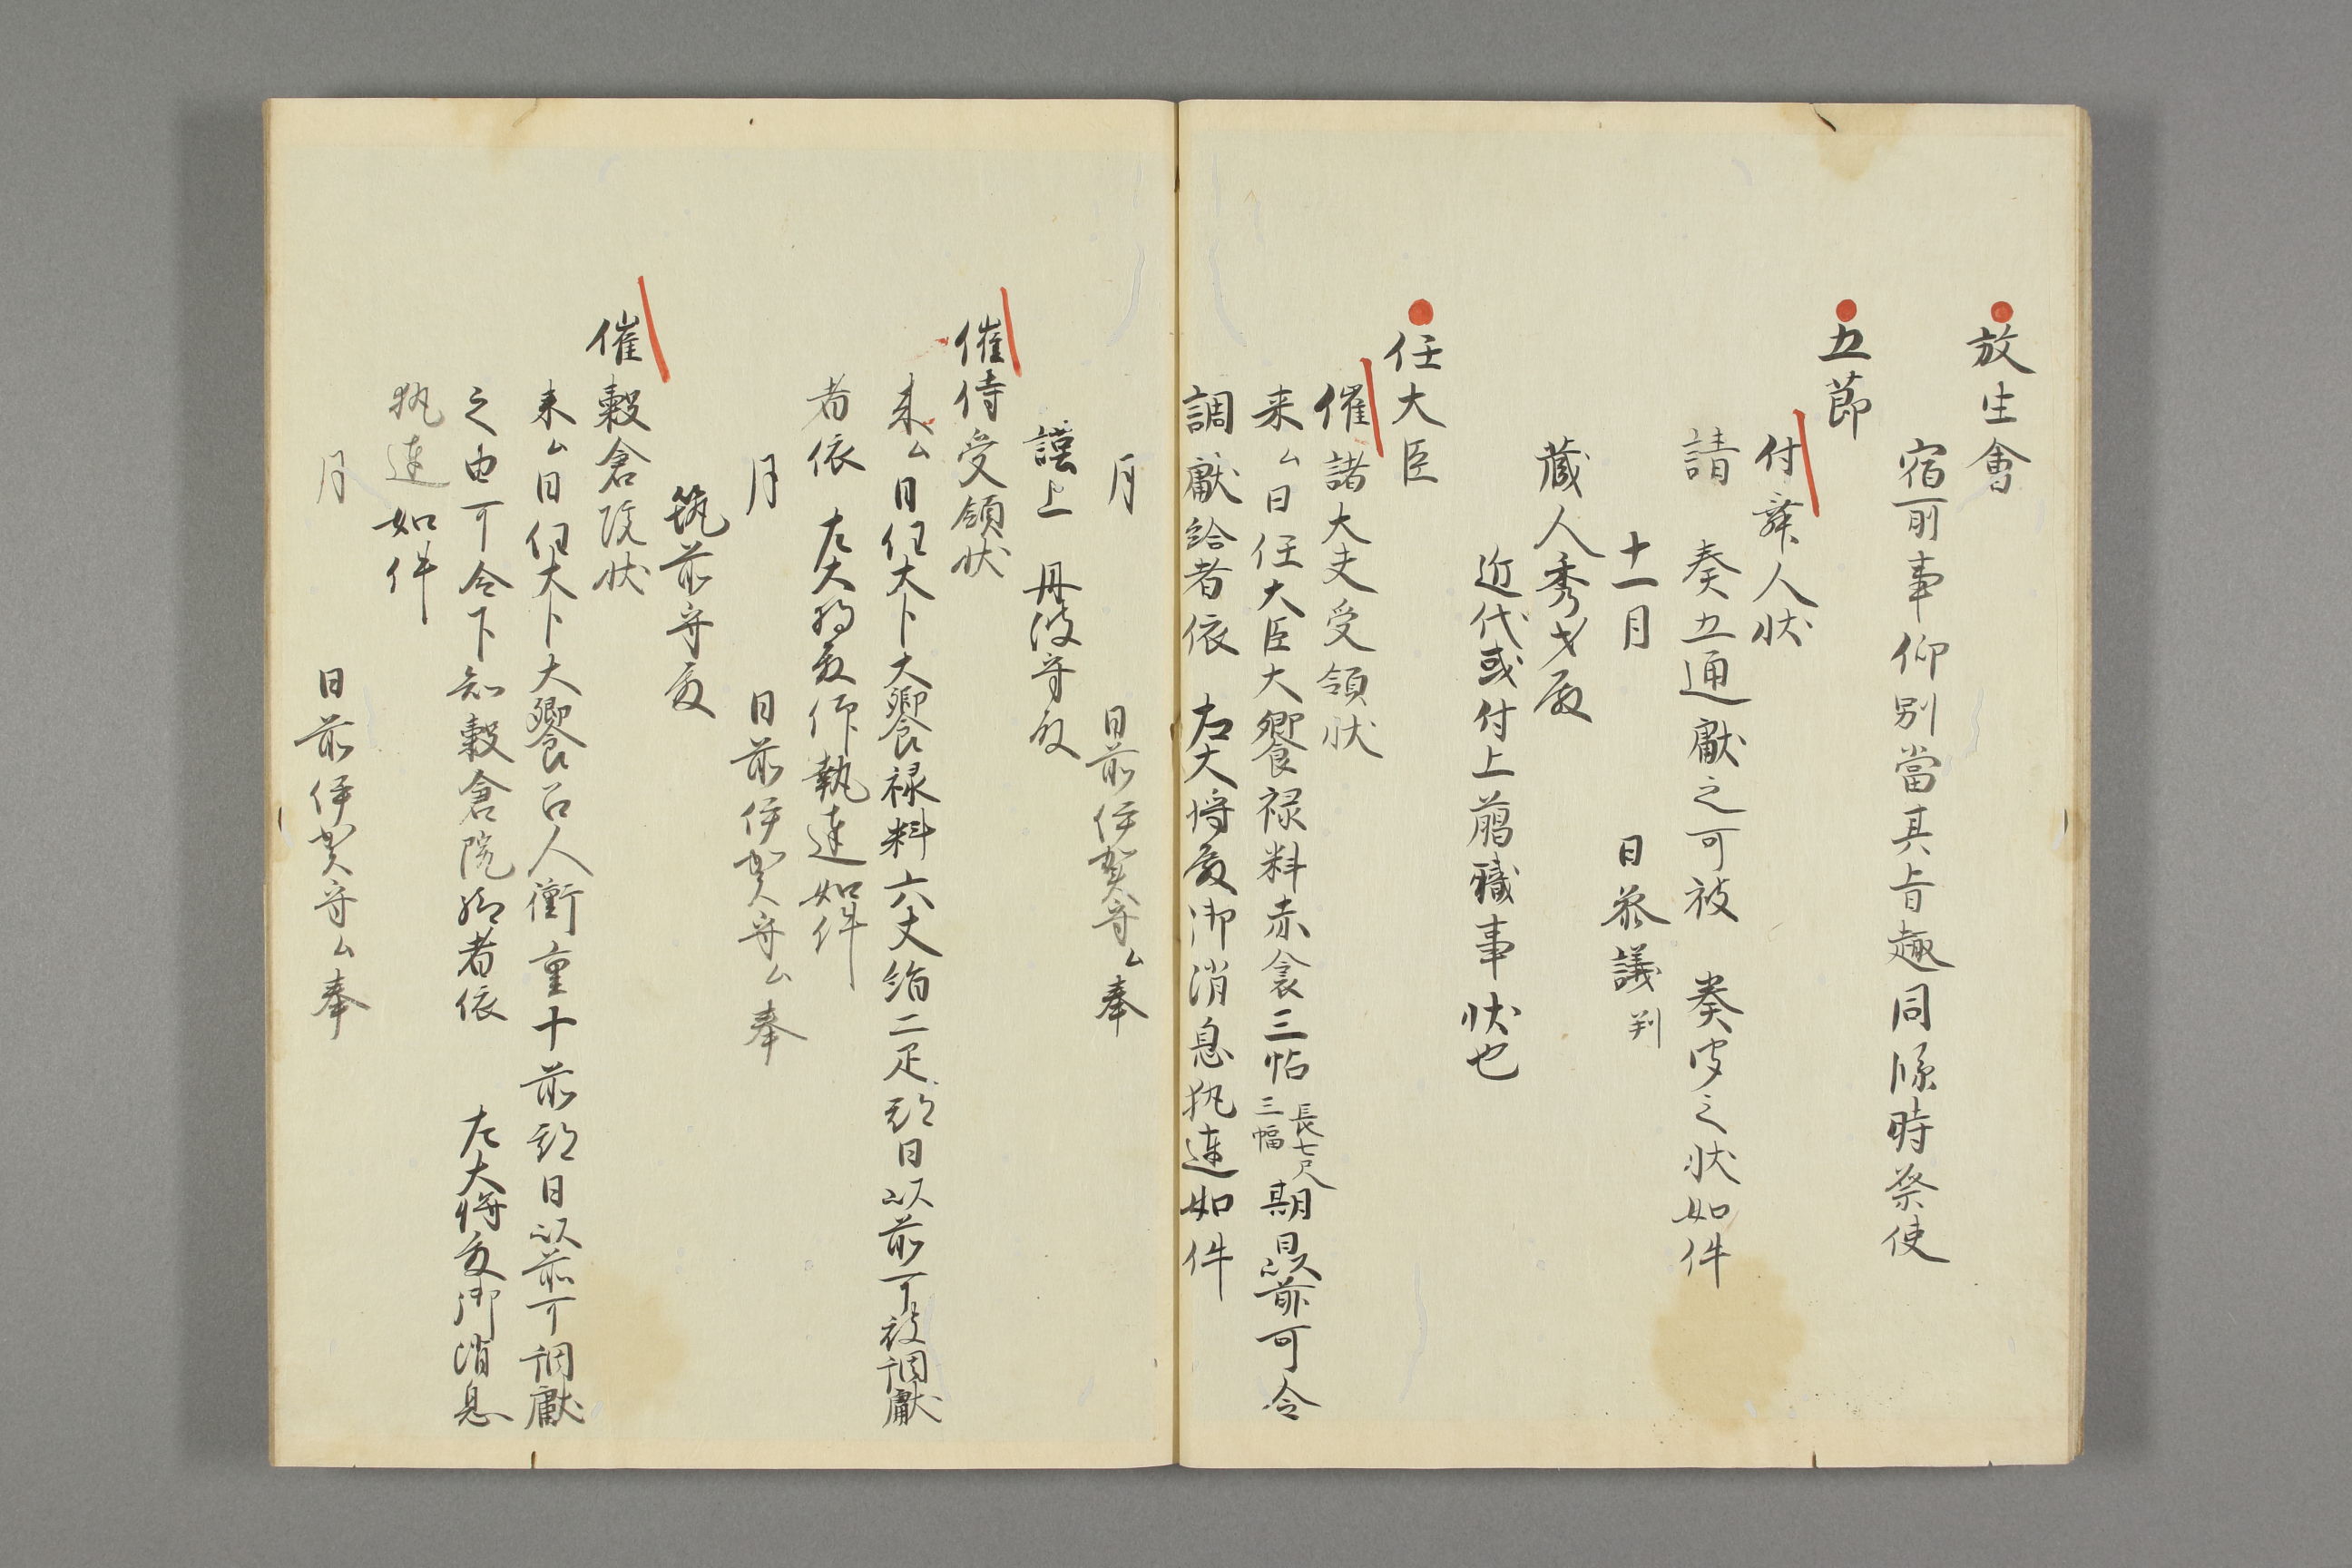 放生會
宿所事仰別當其旨趣同臨時祭使
五節
付舞人状
請　奏五通獻之可被　奏ゝ之状如件
十一月　日参議判
蔵人秀才殿
近代或付上﨟職事状也
任大臣
催諸大夫受領状
来ム日任大臣大饗禄料赤衾三帖長七尺三幅期日以前可令
調獻給者依　左大将殿御消息執達如件
月　日前伊賀守ム奉
謹上　丹波守殿
催侍受領状
来ム日任大卜大饗禄料六丈絹二疋期日以前可被調獻
者依　左大将殿仰執達如件
月　日前伊賀守ム奉
筑前守殿
催穀倉院状
来ム日任大卜大饗召人衝重十前期日以前可調獻
之由可令下知穀倉院給者依　左大将殿御消息
執達如件
月　日前伊賀守ム奉